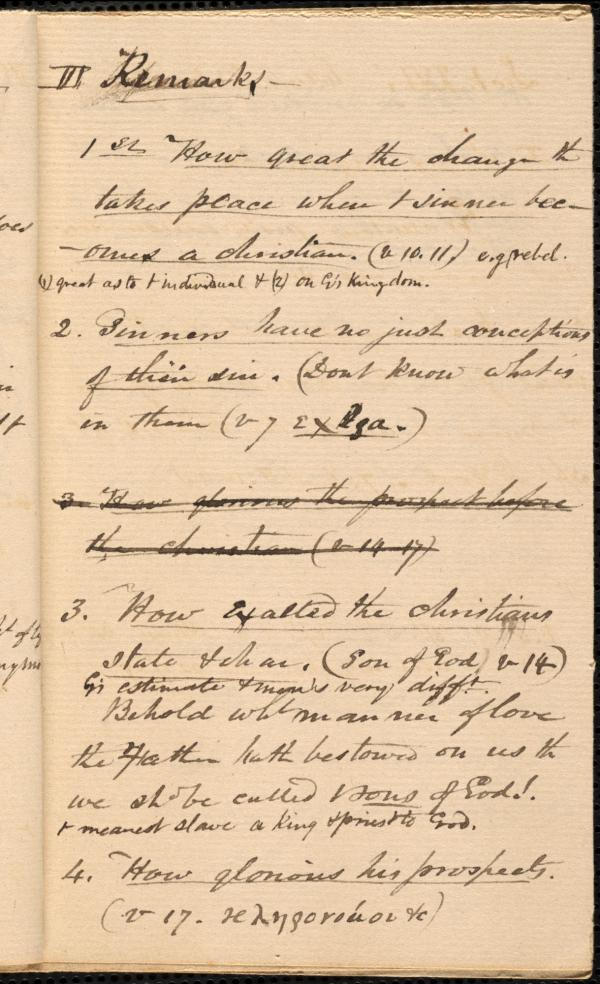 III Remarks
1st How great the change th
takes place when t sinner bec-
-omes a christian. (v 10. 11) e.g. rebel.
(1) great as to t individual & (2) on G's Kingdom.
2. Sinners have no just conceptions
of their sin. (Dont know what is
in them (v 7
3. How glorious the prospect before
the christian (v 14-17)
3. How exalted the christians
state & char. (Son of God v 14)
G's estimate & man's very difft.
Behold wht manner of love
the Father hath bestowed on us th
we shd be called t sons of God!
t meanest slave a King & priest to God.
4. How glorious his prospects.
(v 17. κληρονόμοι &c)